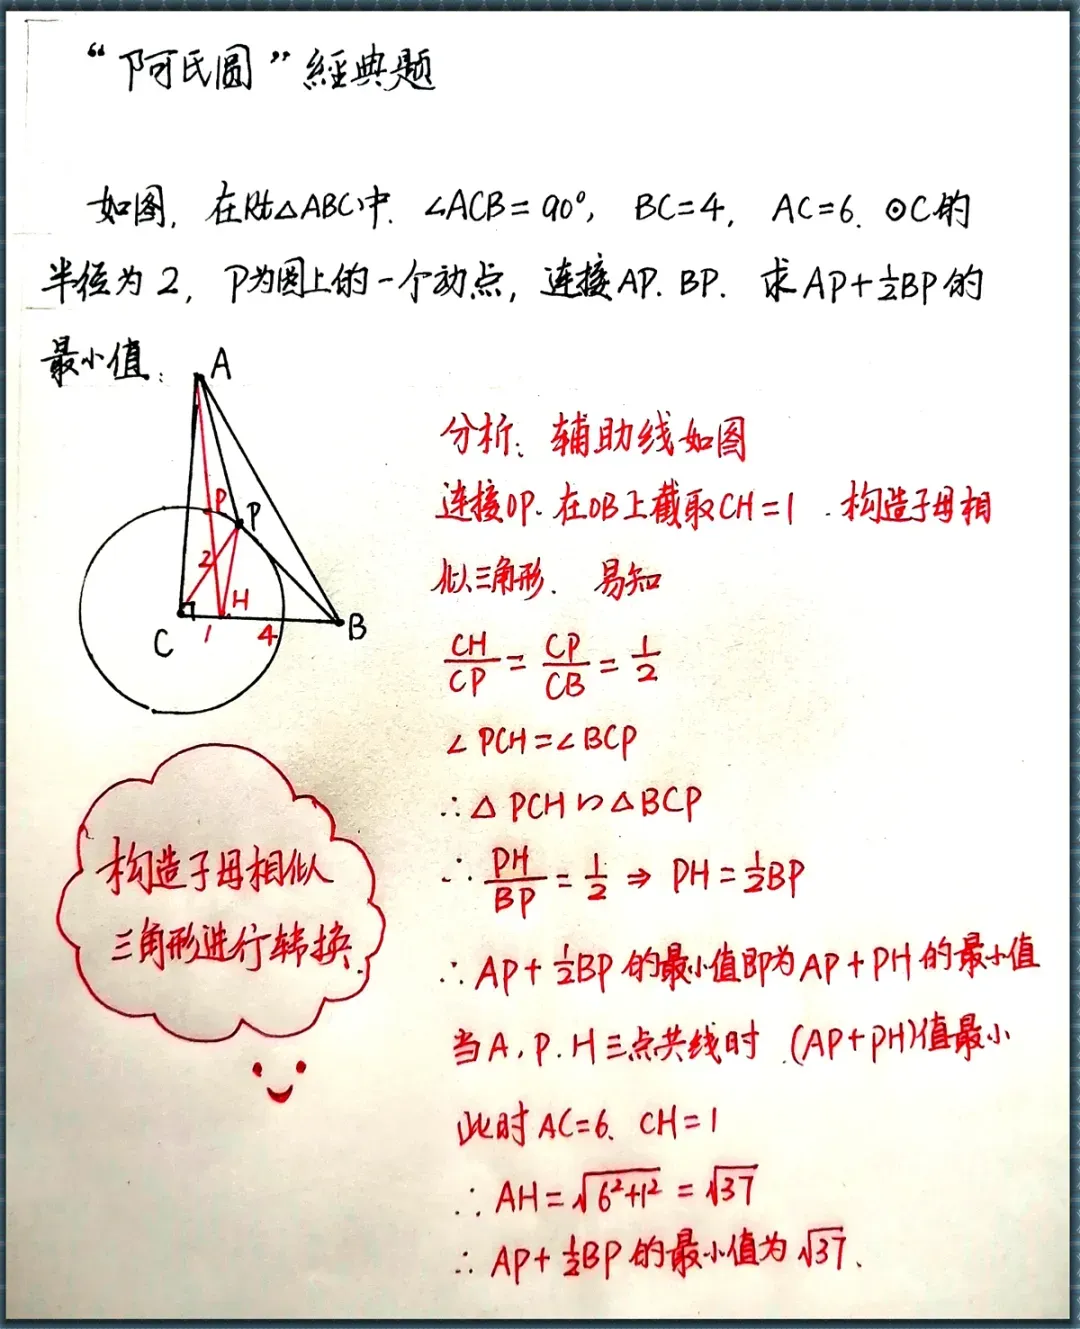 “阿氏圆”經典题
如图,在Rt△ABC中.∠ACB=90°,BC=4,AC=6.⊙C的
半径为2,P为圆上的一个动点,连接AP.BP.求AP+½BP的
最小值.
A
P
P
2
H
C
1
4
B
分析:辅助线如图
连接OP.在OB上截取CH=1.构造子母相
似三角形.易知
CH/CP=CP/CB=1/2
∠PCH=∠BCP
∴△PCH∽△BCP
∴PH/BP=1/2⇒PH=½BP
∴AP+½BP的最小值即为AP+PH的最小值
当A,P.H三点共线时.(AP+PH)值最小
此时AC=6.CH=1
∴AH=√6²+1²=√37
∴AP+½BP的最小值为√37.
构造子母相似
三角形进行转换.